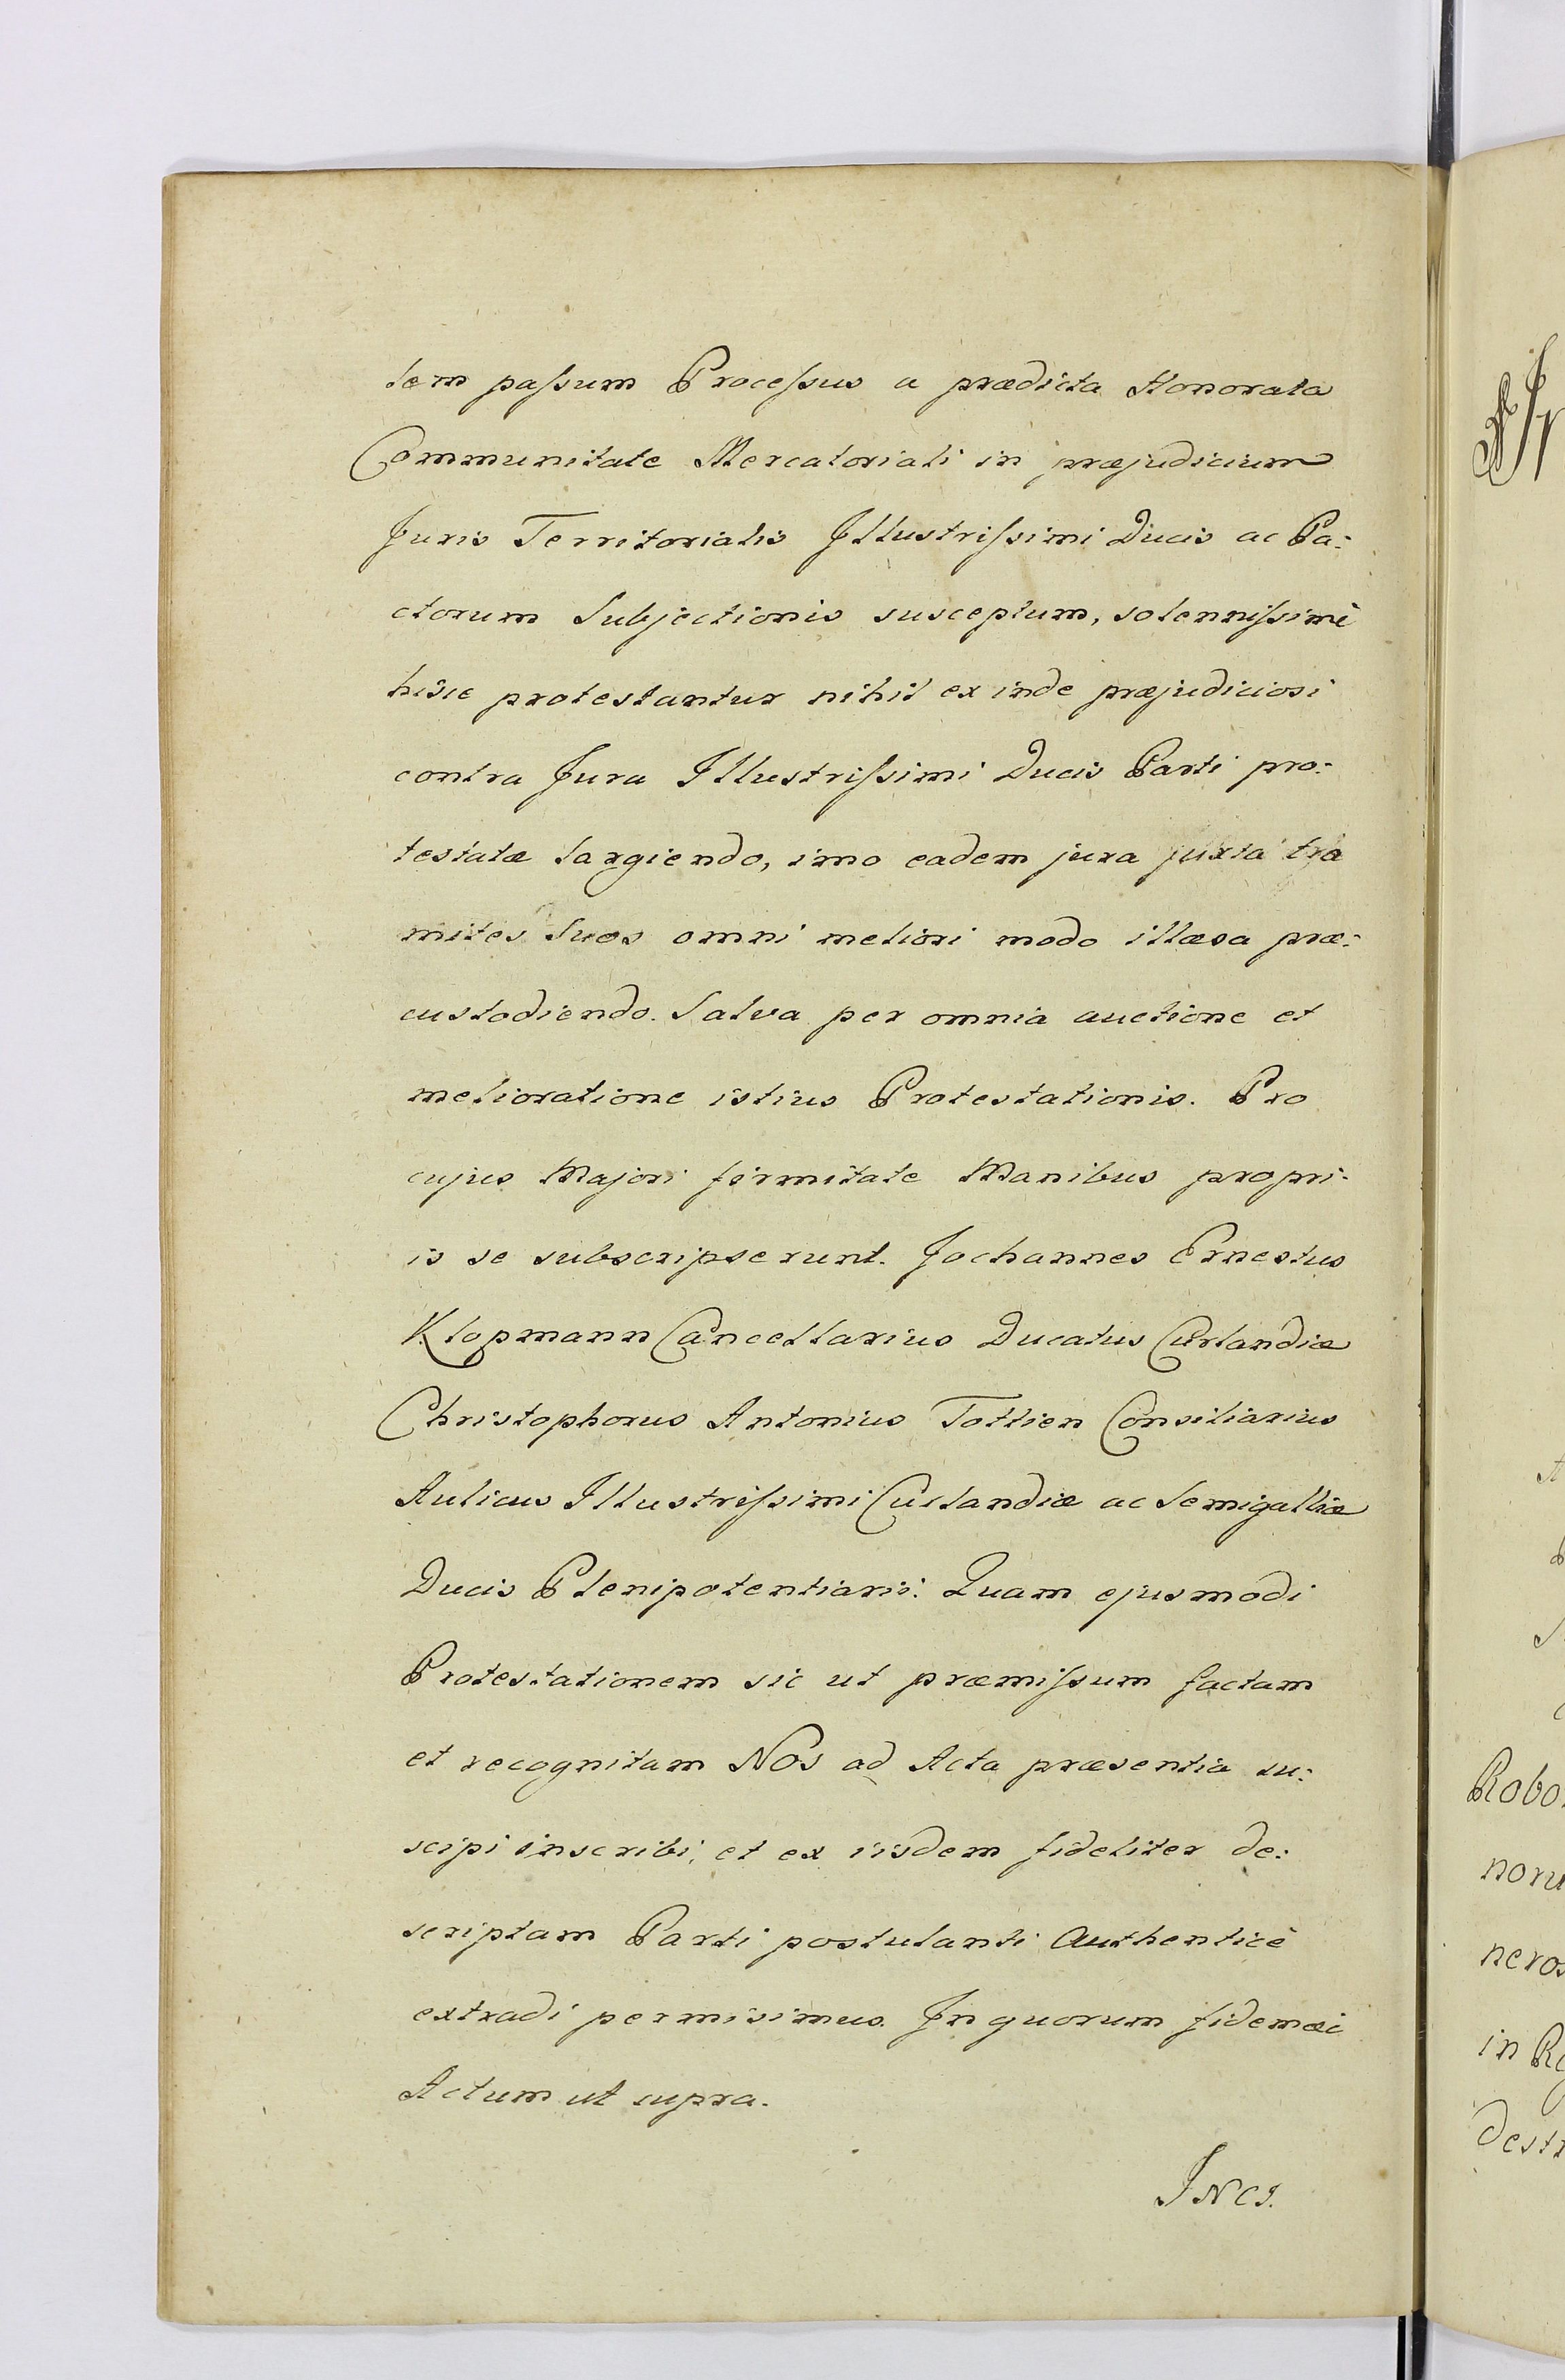 tem paſsum Proceſsus a prædicta Honorata
Communitate Mercatoriali in præjudicium
Juris Territorialis Illustriſsimi Ducis ac Pa:
ctorum Subjectionis susceptum, solenniſsimè
hisce protestantur nihil ex inde præjudiciosi
contra Jura Illustriſsimi Ducis Parti pro:
testatæ largiendo, imo eadem jura juxta tra
mites Suos omni meliori modo illæsa præ:
custodiendo. Salva per omnia auctione et
melioratione istius Protestationis. Pro
cujus Majori firmitate Manibus propri:
is se subscripserunt. Jochannes Ernestus
Klopmann Cancellarius Ducatus Curlandiæ
Christophorus Antonius Tottien Consiliarius
Aulicus Illustriſsimi Curlandiæ ac Semigalliæ
Ducis Plenipotentiarii. Quam ejusmodi
Protestationem sic ut præmiſsum factam
et recognitam Nos ad Acta præsentia su:
scipi inscribi, et ex iisdem fideliter de:
scriptam Parti postulanti Authenticè
extradi permisimus. In quorum fidem
Actum ut supra.
Robo
noru
neros
in Re
destr